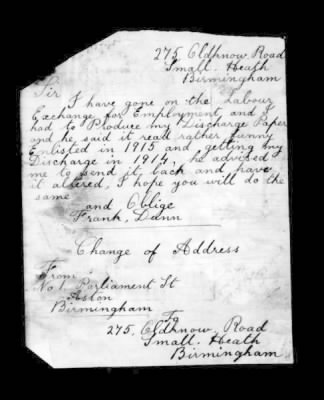 275 Oldknow Road
Small. Heath
Birmingham
Sir
I have gone on the Labour
Exchange for Employment, and I
had to Produce my Discharge Paper
and he said it read rather funny
Enlisted in 1915 and getting my
Discharge in 1914, he advised
me to send it back and have
it altered, I hope you will do the
same
and Oblige
Frank, Dann
Change of Address
From
No 1. Parliament St
Aston
Birmingham
To
275, Oldknow, Road
Small. Heath
Birmingham